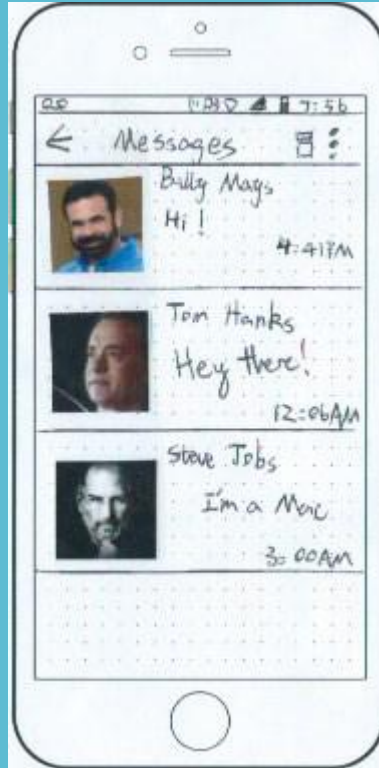 7:56
Messages
Billy Mays
Hi!
4:41PM
Tom Hanks
Hey there!
12:06AM
Steve Jobs
I'm a Mac
3:00AM